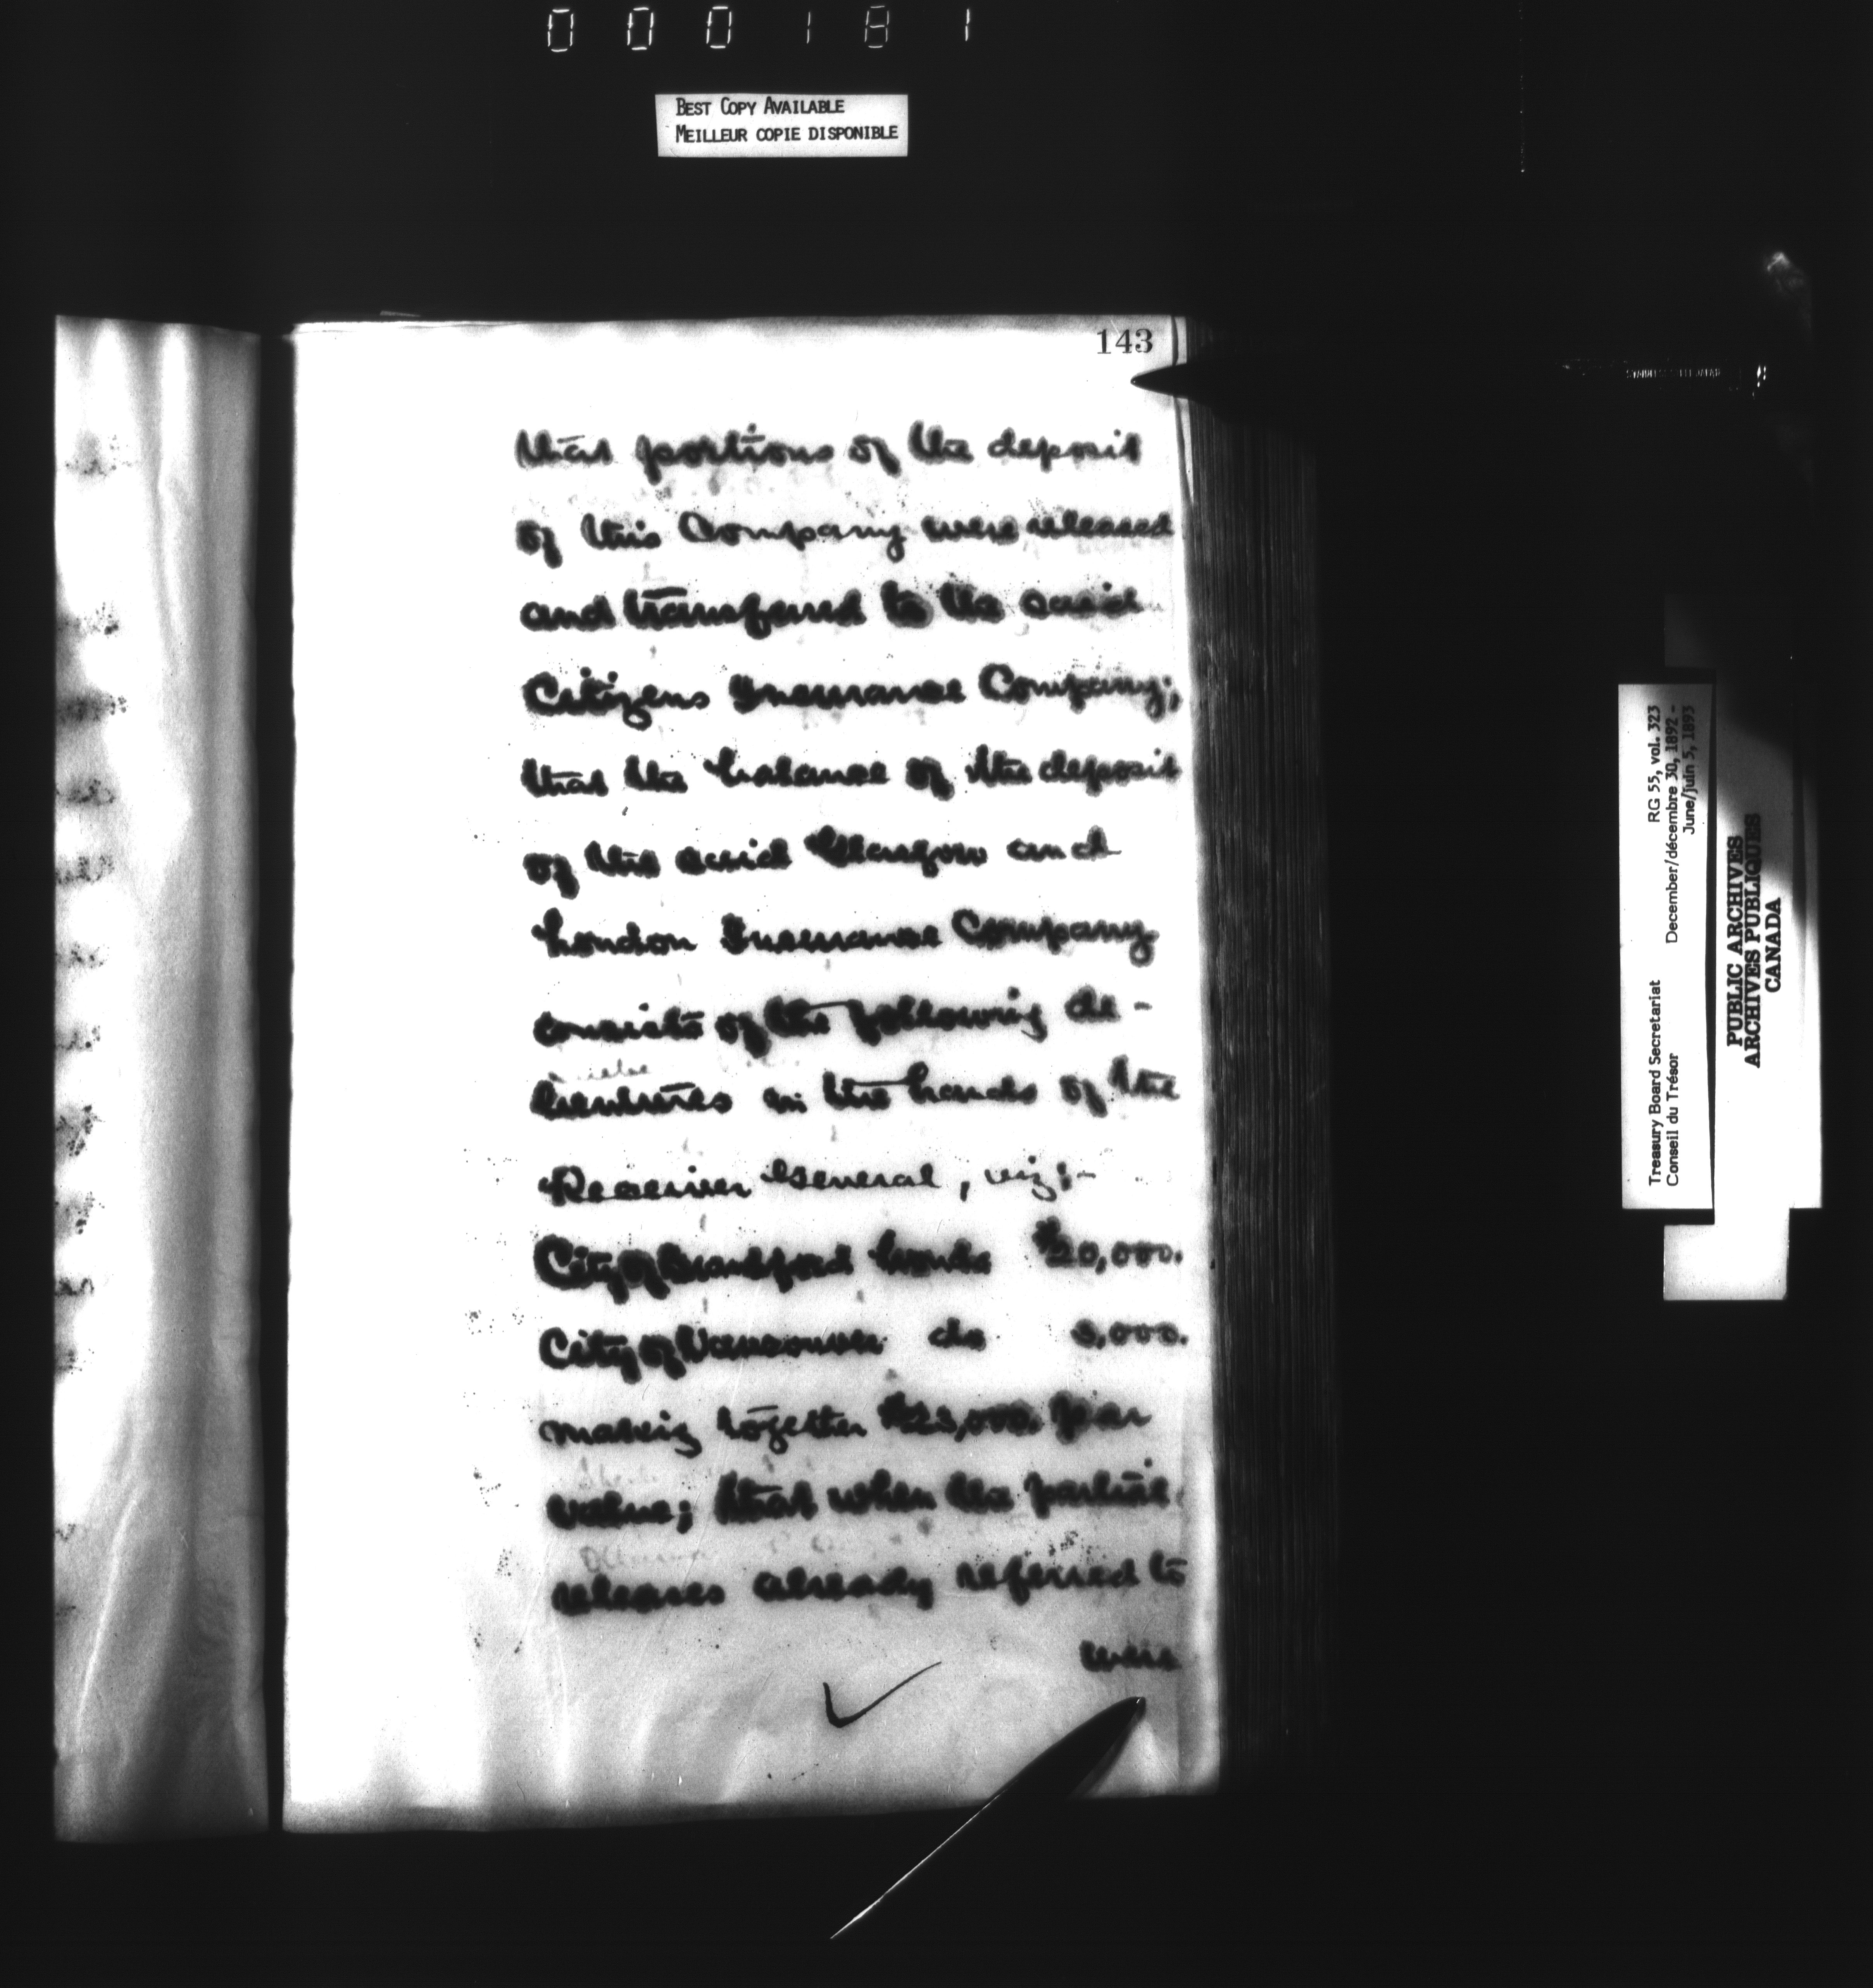 000181
BEST COPY AVAILABLE
MEILLEUR COPIE DISPONIBLE
143
that portions of the deposit
of this Company were released
and transferred to the said
Citizens Insurance Company;
that the balance of the deposit
of the said Glasgow and
London Insurance Company
consists of the following de-
bentures in the hands of the
Receiver General, viz:-
City of Brantford bonds $20,000.
City of Vancouver do ,000.
making together par
value; that when the partial
releases already referred to
were
Treasury Board Secretariat RG 55, vol. 323
Conseil du Trésor December/décembre 30, 1892 -
June/juin 5, 1893
PUBLIC ARCHIVES
ARCHIVES PUBLIQUES
CANADA